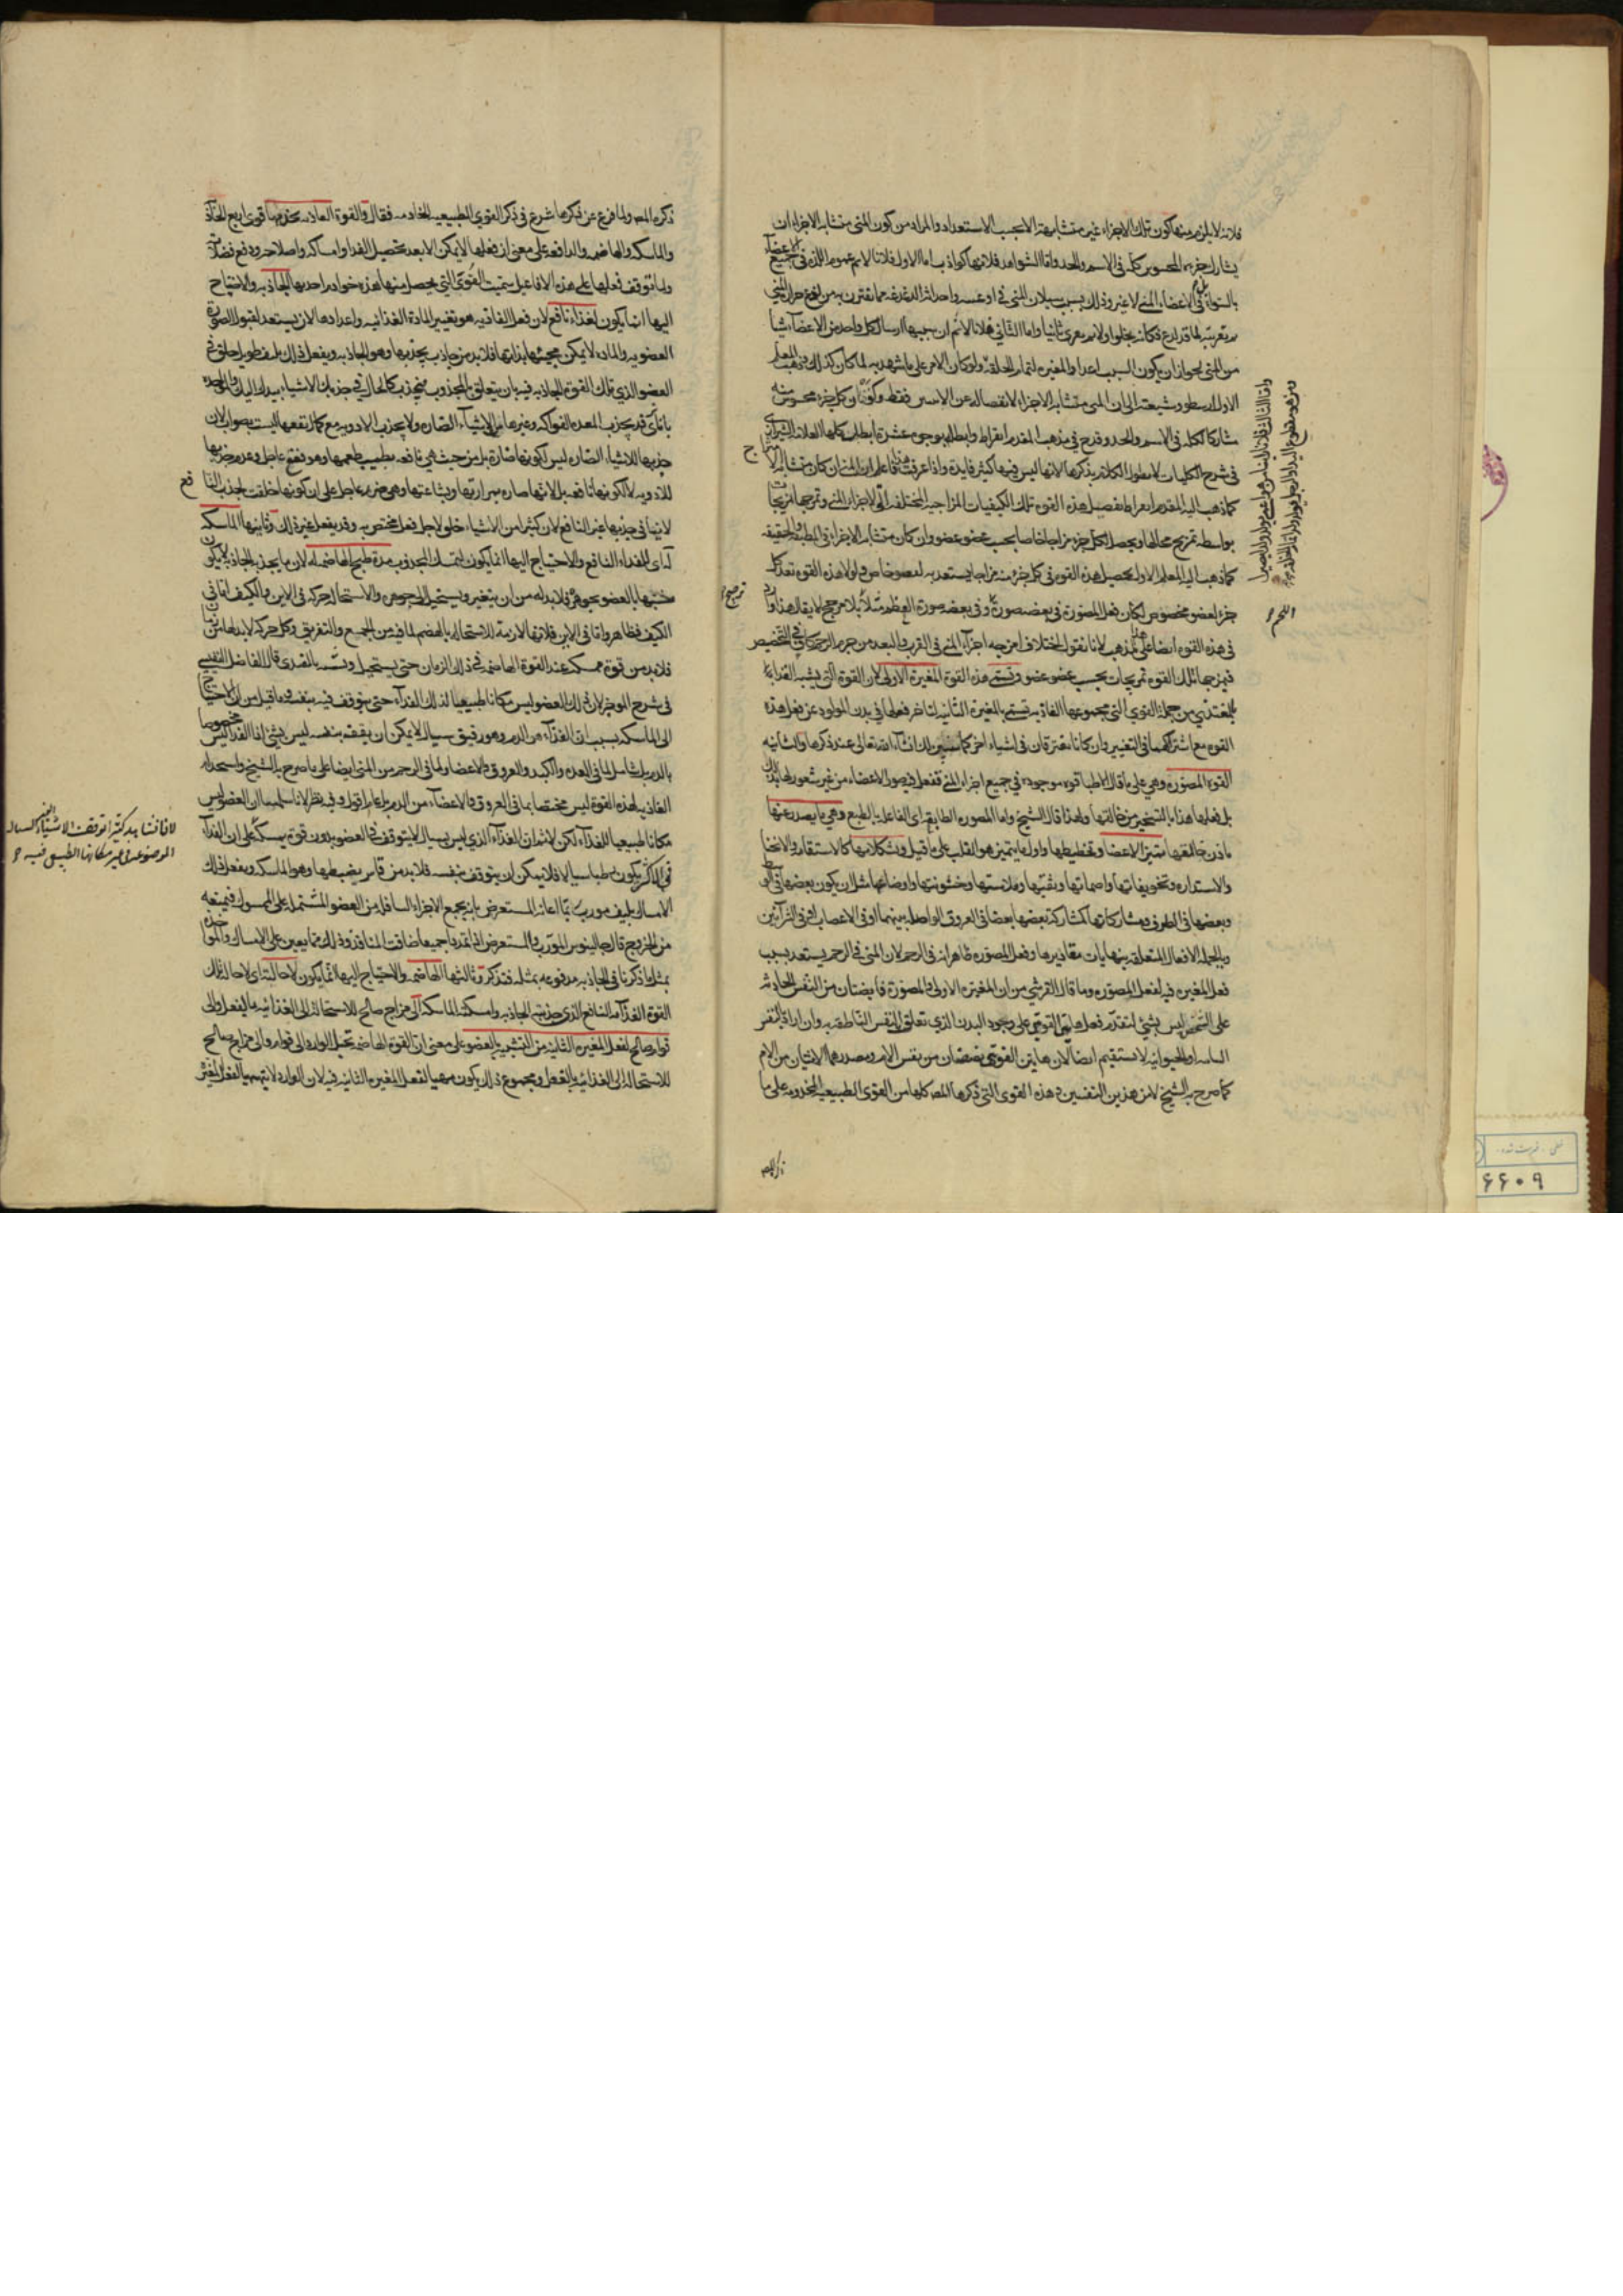 فلانه لا يلزم منها كون تلك الاجزاء غير متشابهة الا بحسب الاستعداد والمراد من كون المنى متشابه الاجزاء ان
يشارك جزءه المحسوس كله فى الاسم والحد واما الشواهد فلانها كواذب اما الاول فلانا لا نم عموم اللذة فى جميع الاعضاء
بالسواء بل فى الاعضاء المنى لا غير وذلك بسبب سيلان المنى فى اوعيته واحداثه الدغدغة
واما الثانى فلانا لا نم ان سببها ارسال كل واحد من الاعضاء شيأ
من المنى لجواز ان يكون السبب اعداد المغيره لتمام الخلقة ولو كان الامر على ما شهد به لما كان كذلك وذهب المعلم
الاول ارسطو وشيعته الى ان المنى متشابه الاجزاء لانفصاله عن الانثيين فقط وكون كل جزء محسوس منه
مشاركا لكله فى الاسم والحد وقدح فى مذهب المقدم ابقراط وابطله بوجوه عشرة ابطل كلها العلامة الشيرازى
فى شرح الكليات لا نطول الكلام بذكرها لانها ليس فيها كثير فايدة واذا عرفت هذا فاعلم ان المنى ان كان متشابه الامتزاج
كما ذهب اليه المقدم ابقراط تفصيل هذه القوه تلك الكيفيات المزاجية المختلفة التى لاجزاء المنى وتمزجها تمزيجا
بواسطة تمزيج محالها ويحصل لكل جزء مزاجا خاصا بحسب عضو عضو وان كان متشابه الاجزاء فى الطبيعة والحقيقة
كما ذهب اليه المعلم الاول تحصيل هذه القوه فى كل جزء منه مزاجا يستعد به لعضو خاص ولولا هذه القوه تعد كل
جزء لعضو مخصوص لكان فعل المصورة فى بعضه صورة وفى بعضه صورة العظم مثلا بلا مرجح لا يقال هذا وارد
فى هذه القوه ايضا على هذا المذهب لانا نقول اختلاف امزجة اجزاء المنى فى القرب والبعد من جرم الرحم كاف فى التخصيص
فيمزجها تلك القوه تمزيجات بحسب عضو عضو وتسمى هذه القوة المغيرة الاولى لان القوة التى يشبه الغذاء
بالمغتذى من جملة القوى التى مجموعها الغاذية تسمى بالمغيرة الثانية لتاخر فعلها فى بدن المولود عن فعل هذه
القوه مع اشتراكهما فى التغيير وان كانا مفترقان فى اشياء اخر كما سيبين لك ان شاء الله تعالى عند ذكرها والثانيه
القوه المصوره وهى على ما قال الاطبا قوه موجوده فى جميع اجزاء المنى فتفعل فيه صور الاعضاء من غير شعور لها بذلك
بل فعلها هذا بالتسخير من خالقها ولهذا قال الشيخ واما المصوره الطابعه اى الفاعله بالطبع وهى ما يصدر عنها
باذن خالقها تميز الاعضا وتخطيطها واول ما يتميز هو القلب على ما قيل وتشكلاتها كالاستقامه والانحنا
والاستداره وتجويفاتها واصماتها وثقبتها وملاستها وخشونتها واوضاعها مثل ان يكون بعضها فى الوسط
وبعضها فى الطرف ومشاركاتها كمشاركة بعضها بعضا فى العروق الواصلة بينهما او فى الاعصاب او فى الشرائين
وبالجملة الافعال المتعلقة بنهايات مقاديرها وفعل المصوره ظاهر انه فى الرحم لان المنى فى الرحم يستعد بسبب
فعل المغيره فيه لفعل المصوره وما قال القرشى من ان المغيره الاولى والمصوره فايضتان من النفس الحادثه
على الشخص ليس بشئ لتقدم فعل هاتين القوتين على وجود البدن الذى تعلق النفس الناطقة به وان اراد بالنفس
النباتيه او الحيوانيه لا يستقيم ايضا لان هاتين القوتين تفيضان من نفس الاب ومصدرهما الانثيان من الام
كما صرح به الشيخ لا من هذين النفسين وهذه القوى التى ذكرها المصـ كلها من القوى الطبيعية المخدومة على ما
ذكره المصـ
اللحم
ذكره المصـ ولما فرغ عن ذكرها شرع فى ذكر القوى الطبيعيه الخادمه فقال والقوة الغاذيه يخدمها قوى اربع الجاذبة
والماسكه والهاضمه والدافعه على معنى ان فعلها لا يمكن الا بعد تحصيل الغذا وامساكه واصلاحه ودفع فضلاته
ولما توقف فعلها على هذه الافاعيل سميت القوى التى يحصل منها هذه خوادم احديها الجاذبه والاحتياج
اليها انما يكون لغذاء نافع لان فعل الغاذيه هو تغيير المادة الغذائيه واعدادها لان يستعد لقبول الصورة
العضويه والماده لا يمكن مجيئها بذاتها فلا بد من جاذب يجذبها وهو الجاذبه ويفعل ذلك بليف طويل خلق فى
العضو الذى تلك القوة الجاذبه فيه بان يتعلق بالمجذوب فيجذب كما الحال فى جذبك الاشياء بيدك اليك
بانا نرى قد يجذب المعده الفواكه وغيرها من الاشياء الضاره ولا يجذب الادويه مع كمال نفعها ليست بصواب لان
جذبها للاشياء الضاره ليس لكونها ضارة بل من حيث هى نافعه بطيب طعمها وهو نفع عاجل وعدم جذبها
للادويه لا لكونها نافعه بل لانها ضاره بمرارتها وبشاعتها وهى ضرر عاجل على ان كونها خلقت لجذب النافع
لا ينافى جذبها غير النافع لان كثيرا من الاشياء خلق لاجل فعل مختص به وقد يفعل غير ذلك وثانيتها الماسكه
له اى للغذاء النافع والاحتياج اليها انما يكون لتمسك المجذوب مدة طبخ الهاضمه له لان ما يجذبه الجاذبه لا يكون
شبيها بالعضو بجوهره فلا بد له من ان يتغير ويستحيل الى جوهره والاستحاله حركه فى الاين والكيف اما فى
الكيف فظاهر واما فى الاين فلانها لازمة للاستحاله بالهضم لما فيه من الجمع والتفريق وكل حركة لا بد لها من زمان
فلا بد من قوة ممسكه عند القوة الهاضمه فى ذلك الزمان حتى يستحيل ويشبه بالمغتذى قال الفاضل النفيسى
فى شرح الموجز لان ذلك العضو ليس مكانا طبيعيا لذلك الغذاء حتى يتوقف فيه بنفسه وما قيل من ان الاحتياج
الى الماسكه بسبب ان الغذاء هو الدم وهو رقيق سيال لا يمكن ان يقف بنفسه ليس بشئ اذا الغذا ليس مخصوصا
بالدم بل شامل لما فى المعده والكبد والعروق والاعضا ولما فى الرحم من المنى ايضا على ما صرح به الشيخ
الغاذيه لهذه القوة ليس مختصا بما فى العروق والاعضاء من الدم بل عام اقول وفيه نظر لانا سلمنا ان العضو ليس
مكانا طبيعيا للغذاء لكن لا نم ان الغذاء الذى ليس بسيال لا يتوقف فى العضو بدون قوة يمسكه على ان الغذاء
فى الاكثر يكون رطبا سيالا فلا يمكن ان يتوقف بنفسه فلا بد من قاسر يضبطها وهو الماسكه ويفعل ذلك
الامساك بليف مورب بما اعانه المستعرض بانه يجمع الاجزاء السافله من العضو المشتمله على الممسوك فيمنعه
من الخروج قال جالينوس المورب والمستعرض اذا تمددا جميعا ضاقت المنافذ وذلك مما يعين على الامساك والمواخذه
بمثل ما ذكرنا فى الجاذبه مدفوعه بمثله فتذكر وثالثتها الهاضمه والاحتياج اليها انما يكون لاحالته اى لاحالة تلك
القوة الغذاء النافع الذى جذبته الجاذبه وامسكته الماسكه الى مزاج صالح للاستحاله الى الغذائيه بالفعل والى
قوام صالح لفعل المغيره الثانيه من التشبيه بالعضو على معنى ان القوة الهاضمه تحيل الوارد الى قوام والى مزاج صالح
للاستحالة الى الغذائيه بالفعل ومجموع ذلك يكون مهيأ لفعل المغيره الثانيه فيه لان الوارد لا يتهيأ لفعل المغيره
لانا نشاهد كثيرا توقف الاشياء الغير السياله
الموضوعه فى غير مكانها الطبيعى فيه
٦٦٠٩